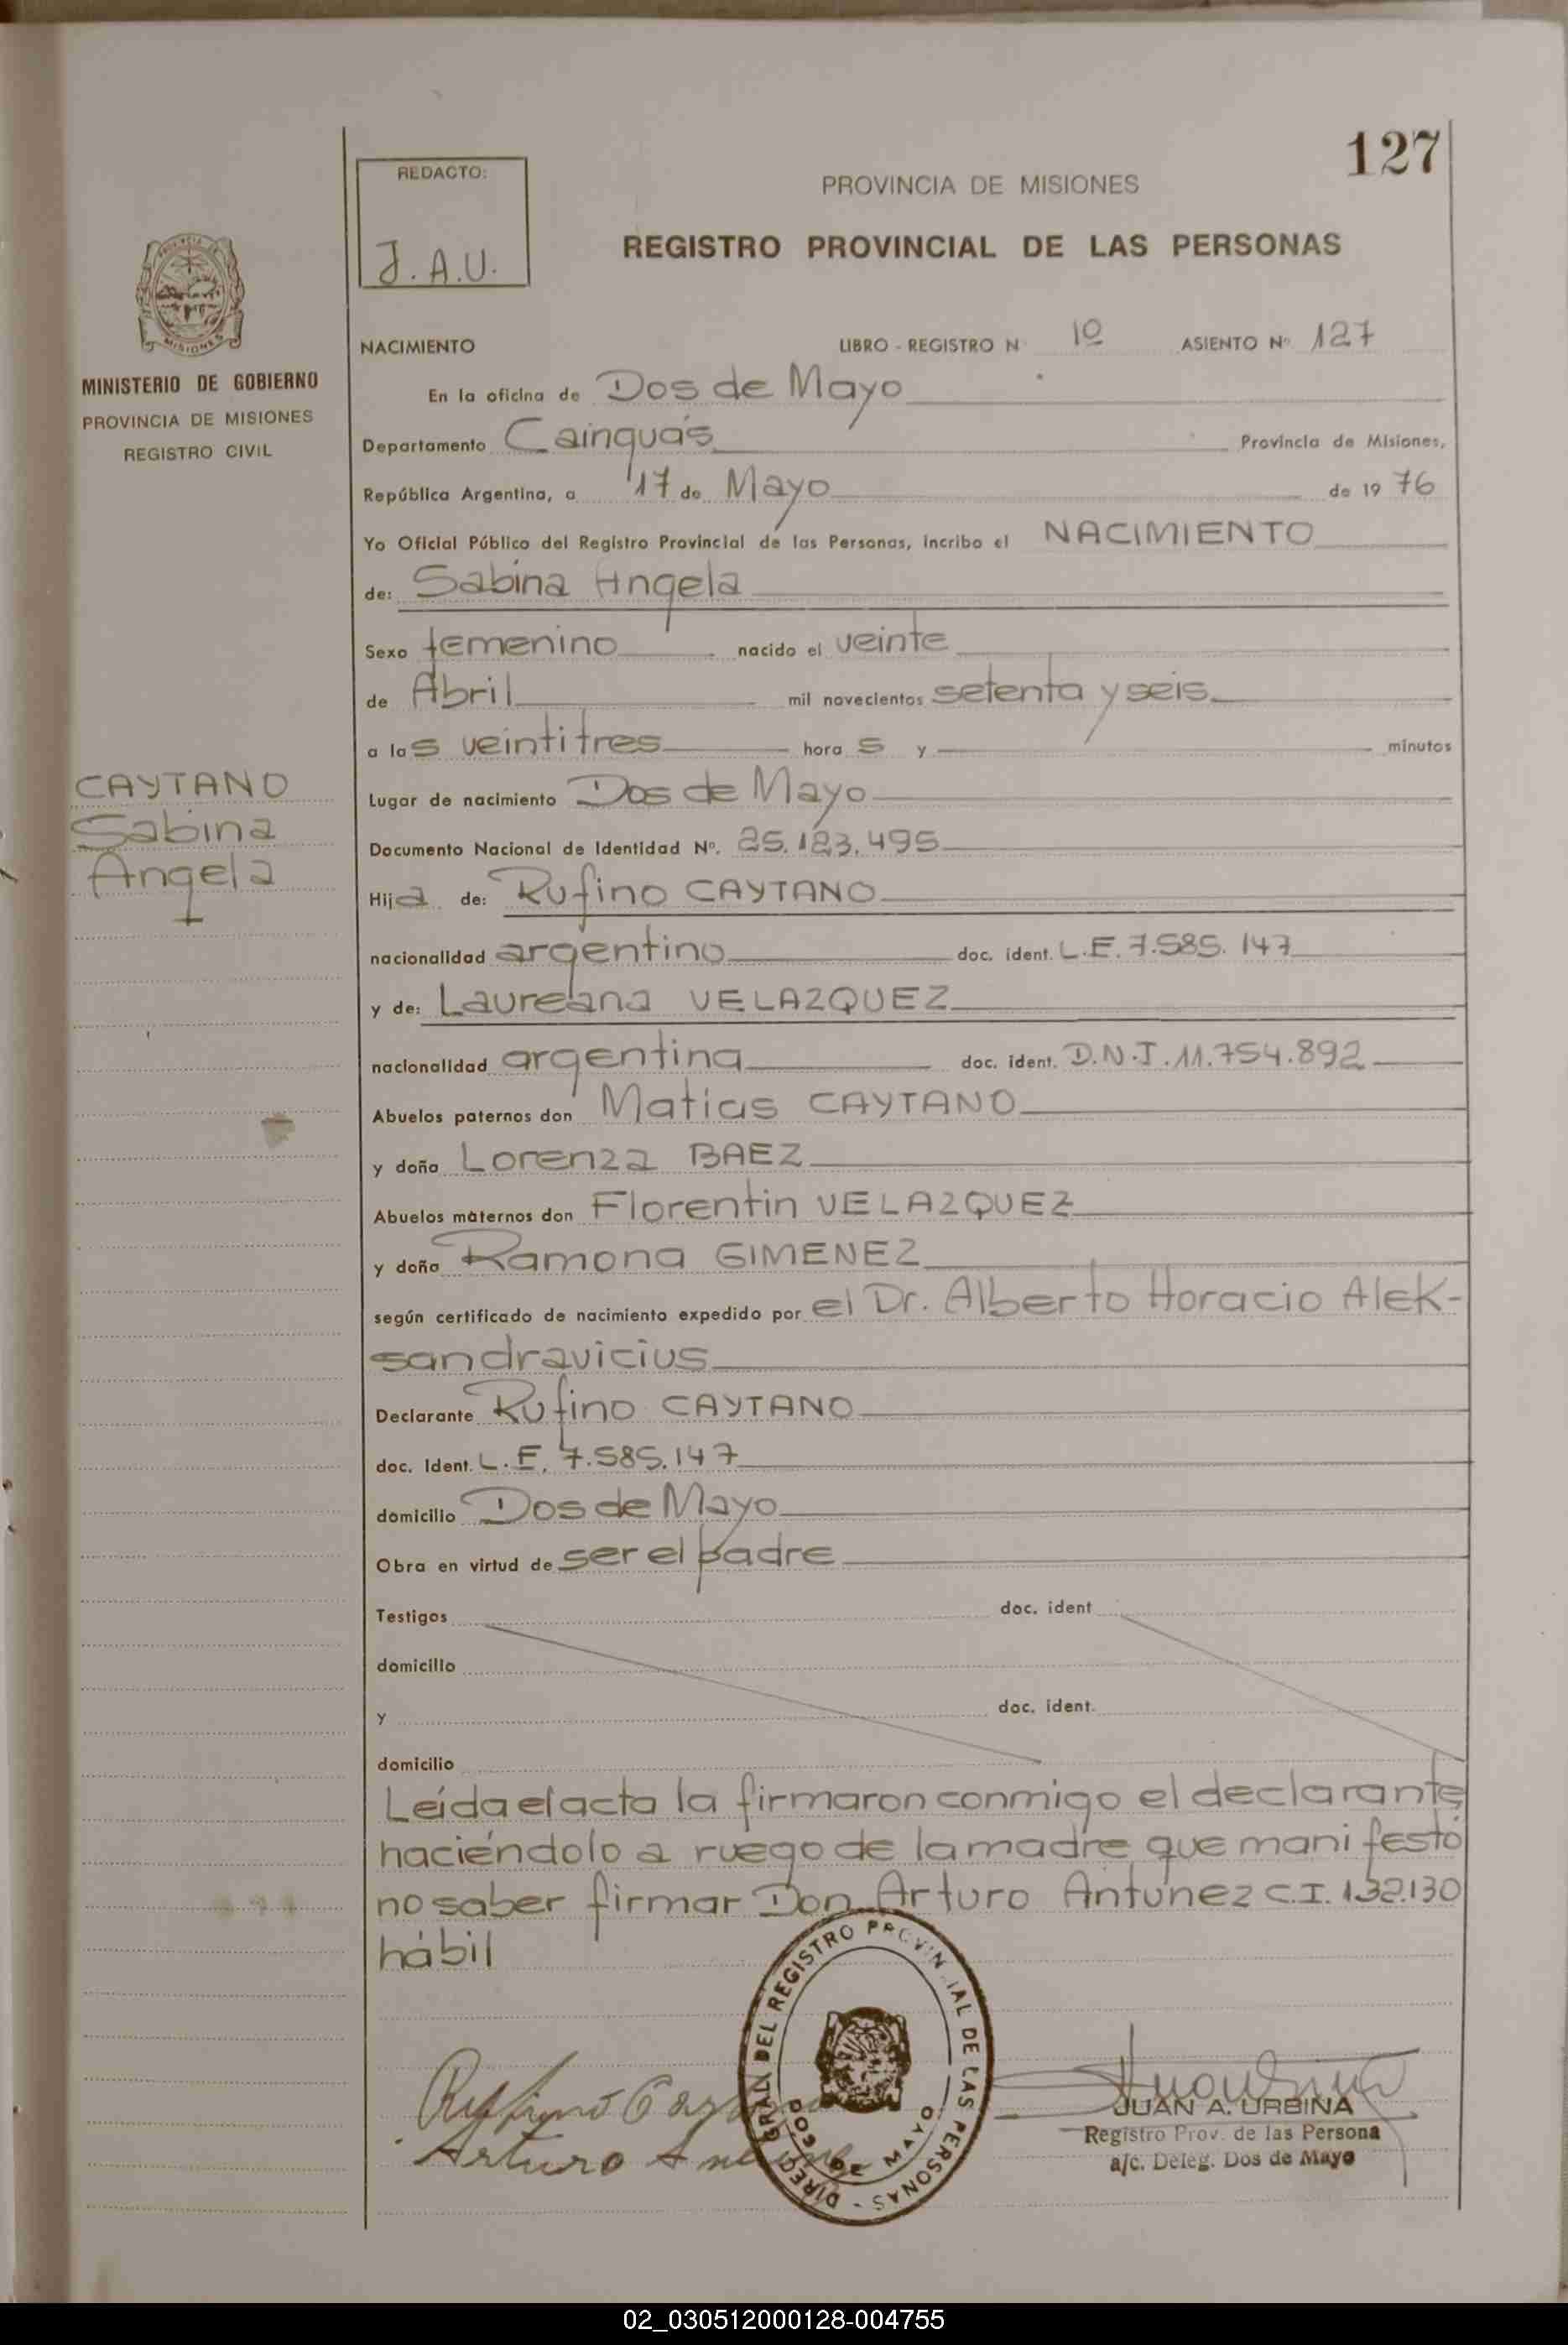 127
REDACTO:
J.A.U.
PROVINCIA DE MISIONES
REGISTRO PROVINCIAL DE LAS PERSONAS
MISIONES
MINISTERIO DE GOBIERNO
PROVINCIA DE MISIONES
REGISTRO CIVIL
NACIMIENTO LIBRO - REGISTRO N 1º ASIENTO Nº 127
En la oficina de Dos de Mayo
Departamento Cainguás Provincia de Misiones,
República Argentina, a 17 de Mayo de 19 76
Yo Oficial Público del Registro Provincial de las Personas, incribo el NACIMIENTO
de: Sabina Angela
Sexo femenino nacido el veinte
de Abril mil novecientos setenta y seis
a las veintitres horas y minutos
CAYTANO
Sabina
Angela
Lugar de nacimiento Dos de Mayo
Documento Nacional de Identidad Nº. 25.123.495
Hija de: Rufino CAYTANO
nacionalidad argentino doc. ident. L.E. 7.585.147
y de: Laureana VELAZQUEZ
nacionalidad argentina doc. ident. D.N.I. 11.754.892
Abuelos paternos don Matias CAYTANO
y doña Lorenza BAEZ
Abuelos maternos don Florentin VELAZQUEZ
y doña Ramona GIMENEZ
según certificado de nacimiento expedido por el Dr. Alberto Horacio Alek-
sandravicius
Declarante Rufino CAYTANO
doc. Ident. L.E. 7.585.147
domicilio Dos de Mayo
Obra en virtud de ser el padre
Testigos doc. ident
domicilio
y doc. ident.
domicilio
Leída el acta la firmaron conmigo el declarante
haciéndolo a ruego de la madre que manifestó
no saber firmar Don Arturo Antunez C.I. 132.130
hábil
DIREC. GRAL. DEL REGISTRO PROVINCIAL DE LAS PERSONAS -
DOS DE MAYO
Rufino
Arturo
JUAN A. URBINA
Registro Prov. de las Persona
a/c. Deleg. Dos de Mayo
02_030512000128-004755